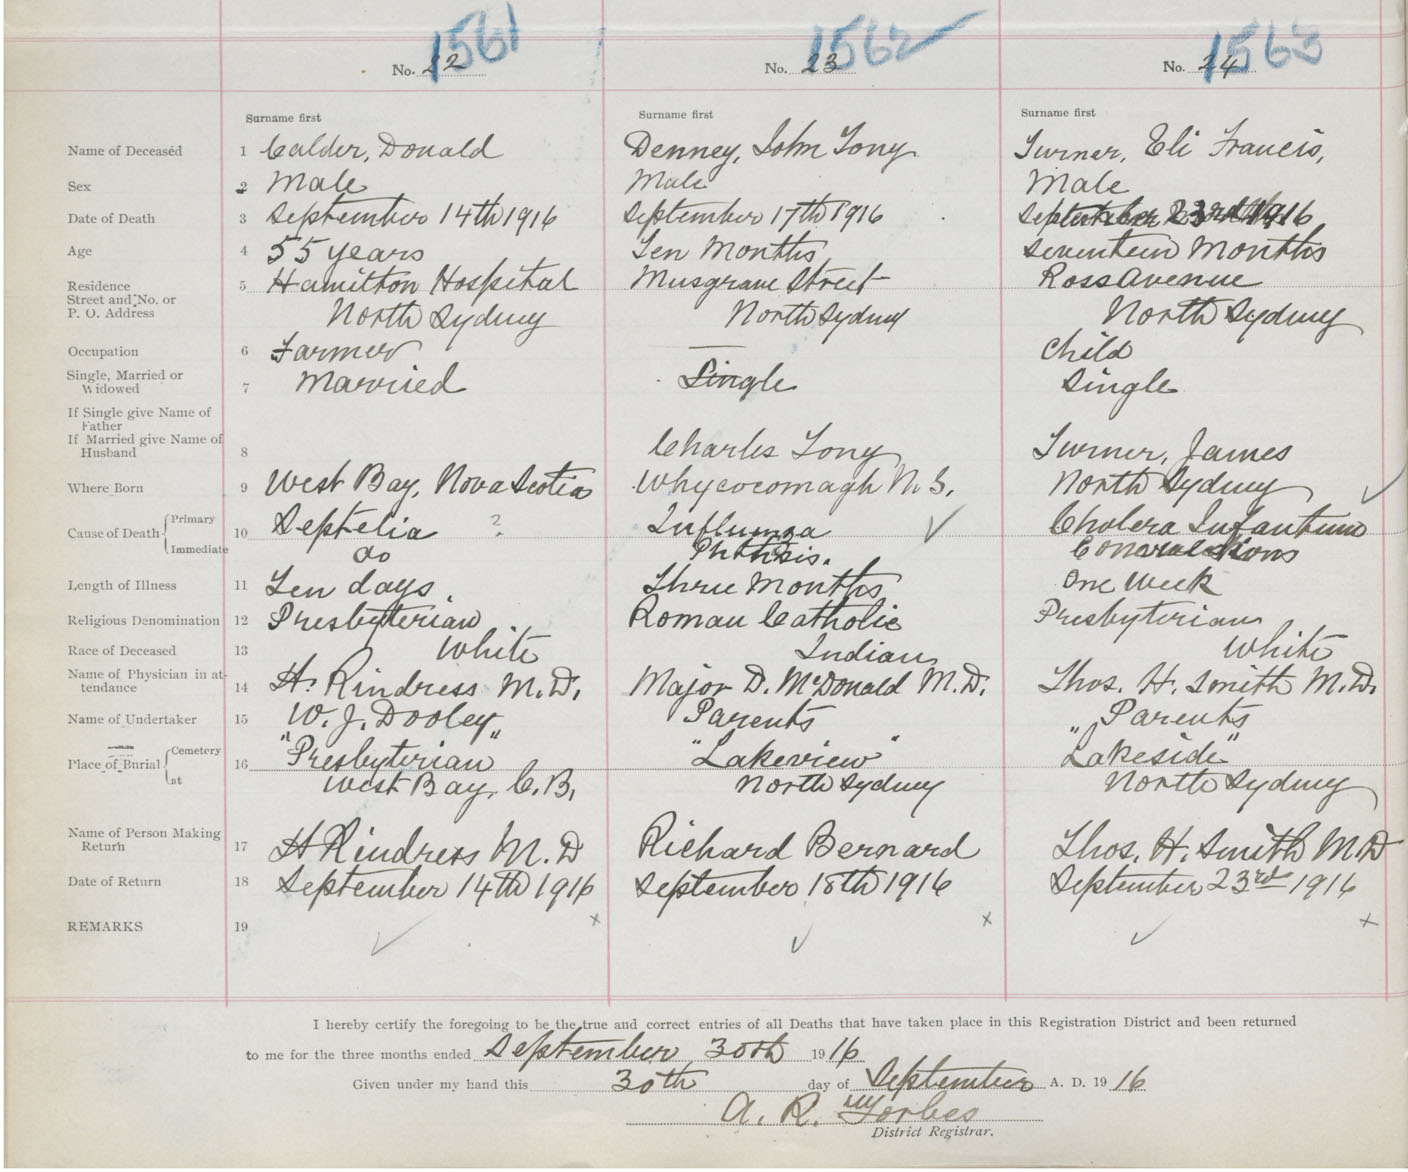 1561 1562 1563
No. 22 No. 23 No. 24
Surname first Surname first Surname first
Name of Deceased 1 Calder, Donald Denney, John Tony Turner, Eli Francis,
Sex 2 Male Male Male
Date of Death 3 September 14th 1916 September 17th 1916 September 23rd 1916
Age 4 55 years Ten Months Seventeen Months
Residence 5 Hamilton Hospital Musgrave Street Ross Avenue
Street and No. or
P. O. Address North Sydney North Sydney North Sydney
Occupation 6 Farmer — Child
Single, Married or
Widowed 7 Married Single Single
If Single give Name of
Father
If Married give Name of
Husband 8 Charles Tony Turner, James
Where Born 9 West Bay, Nova Scotia Whycocomagh N.S. North Sydney
Cause of Death Primary 10 Septelia ? Influenza Cholera Infantum
Immediate do Phthisis. Convulsions
Length of Illness 11 Ten days. Three Months One Week
Religious Denomination 12 Presbyterian Roman Catholic Presbyterian
Race of Deceased 13 White Indian White
Name of Physician in at-
tendance 14 H. Rindress M.D. Major D. McDonald M.D. Thos. H. Smith M.D.
Name of Undertaker 15 W. J. Dooley Parents Parents
Place of Burial Cemetery 16 "Presbyterian" "Lakeview" "Lakeside"
at West Bay, C.B. North Sydney North Sydney
Name of Person Making
Return 17 H Rindress M.D Richard Bernard Thos. H. Smith M.D
Date of Return 18 September 14th 1916 September 18th 1916 September 23rd 1916
REMARKS 19
I hereby certify the foregoing to be the true and correct entries of all Deaths that have taken place in this Registration District and been returned
to me for the three months ended September 30th 1916
Given under my hand this 30th day of September A. D. 1916
A. R. Forbes
District Registrar.